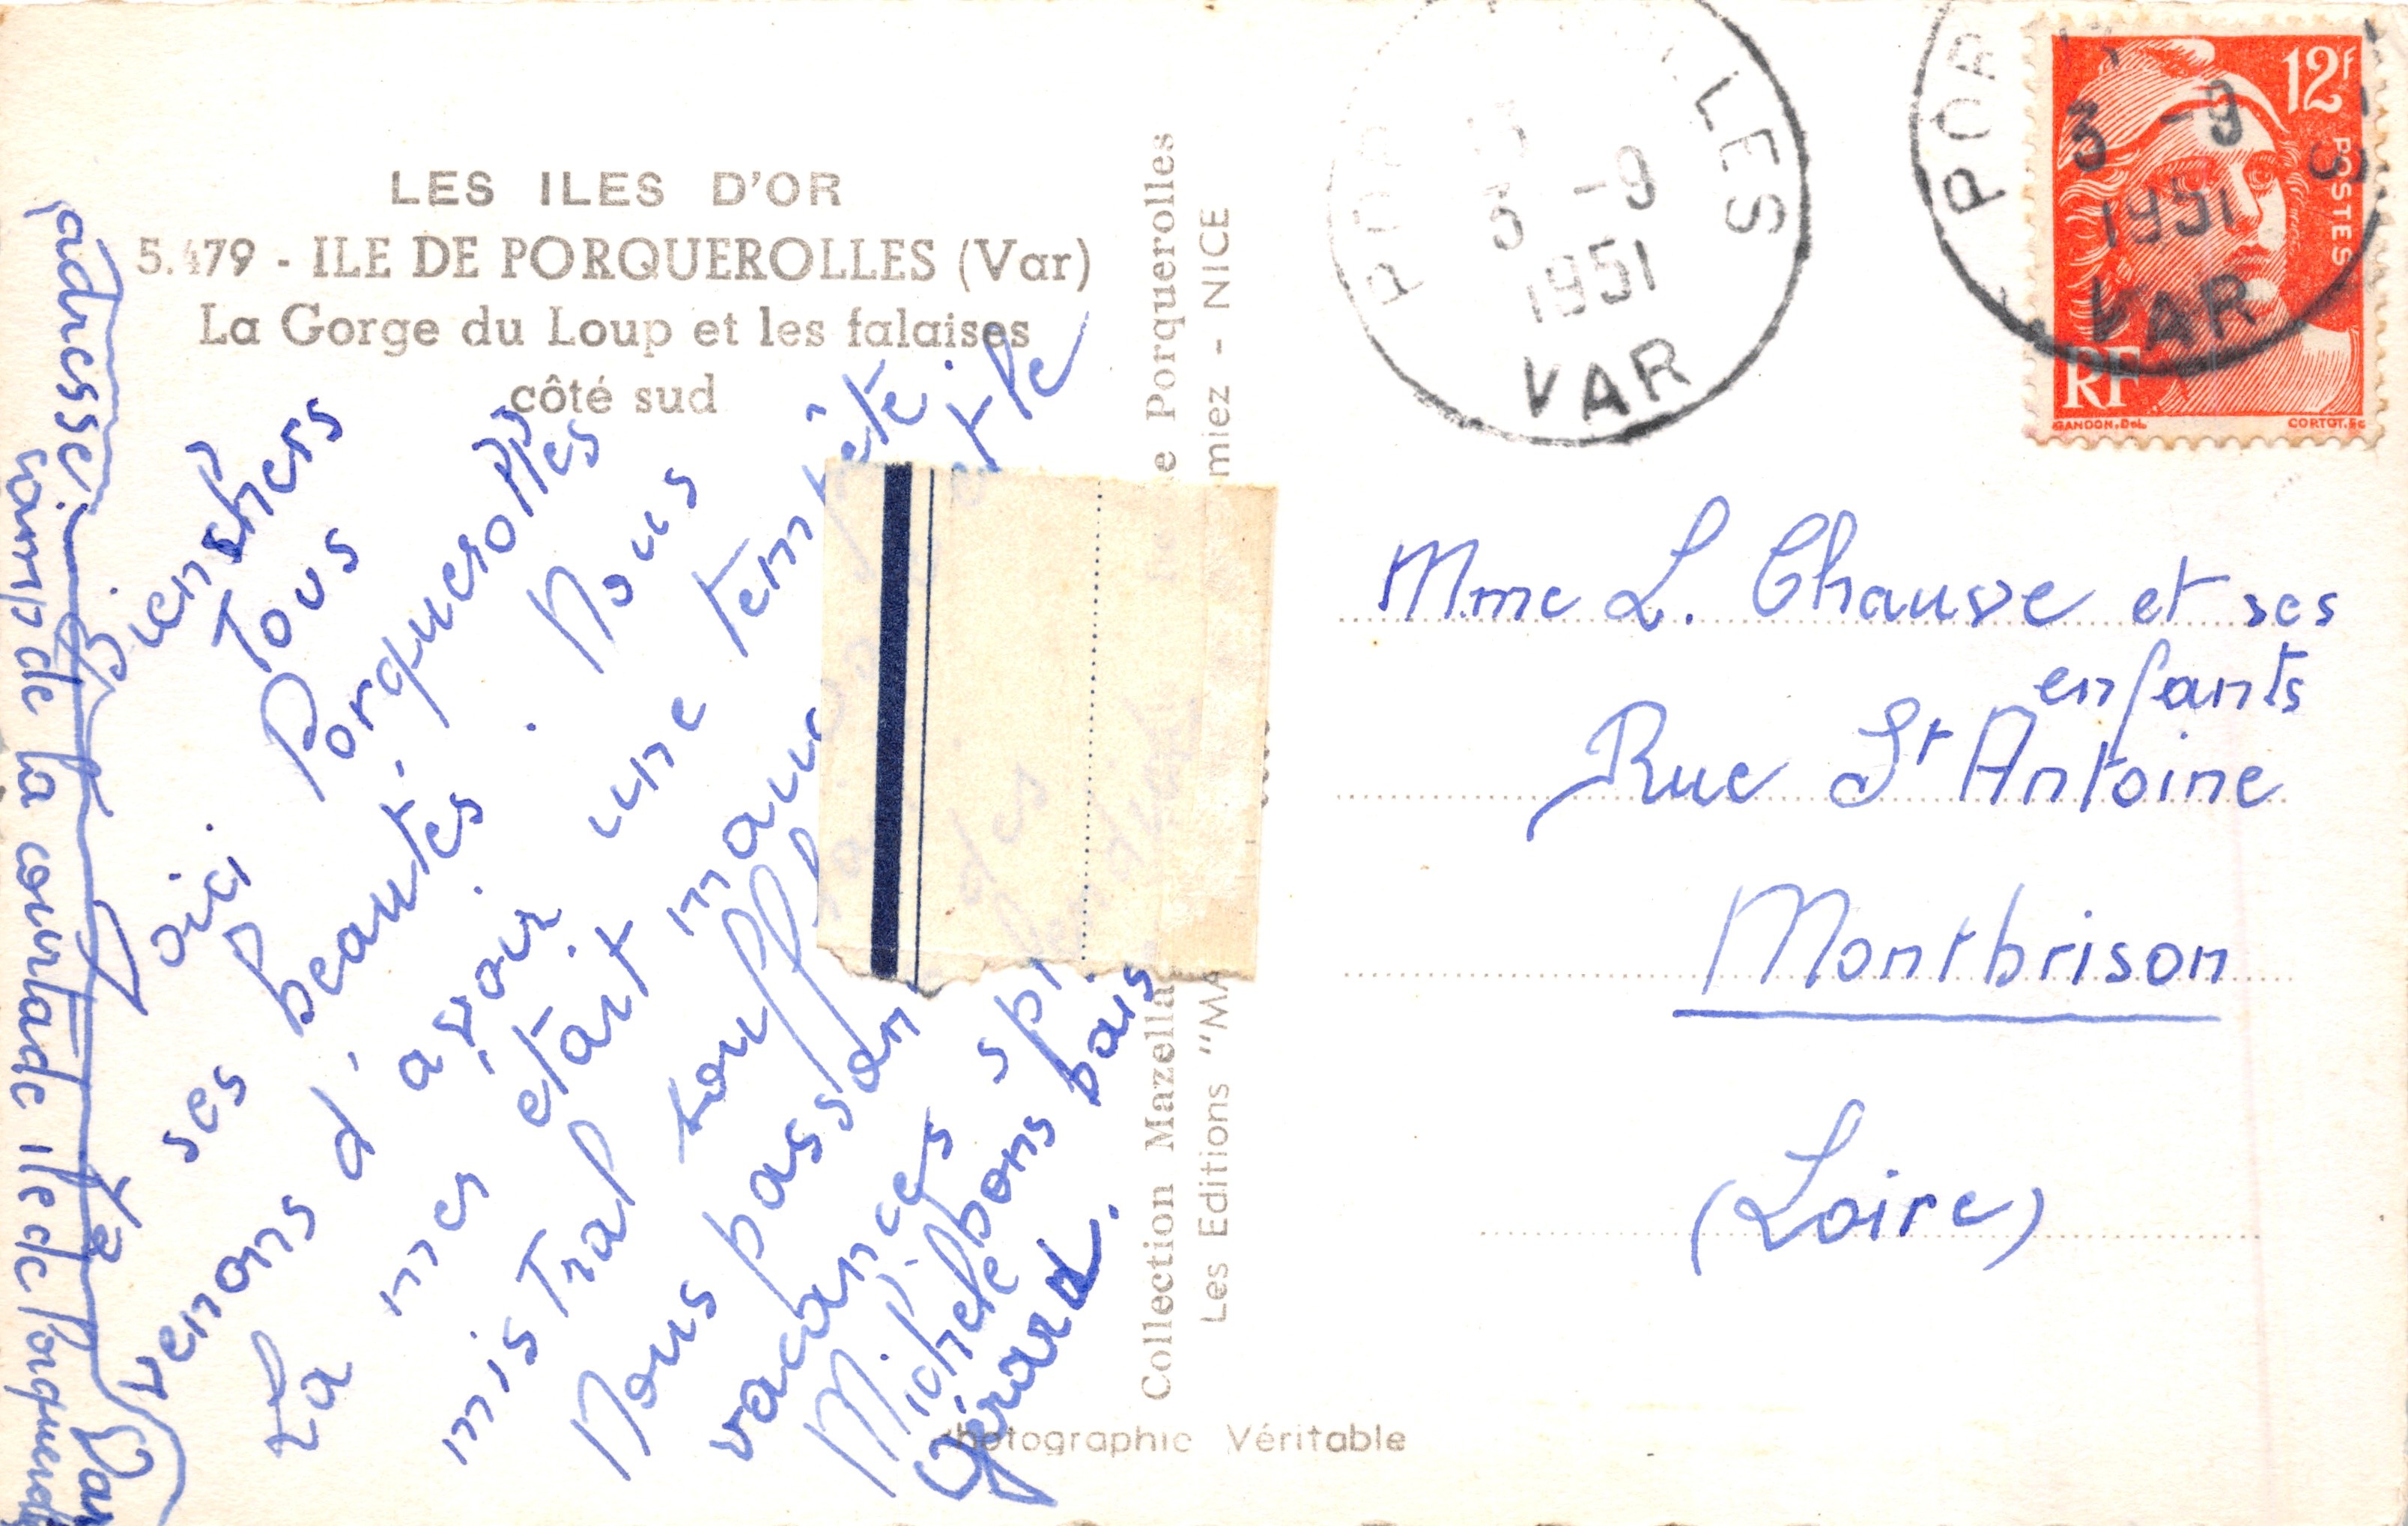 LES ILES D'OR
5.479 - ILE DE PORQUEROLLES (Var)
La Gorge du Loup et les falaises
côté sud
Bien chers
Tous
Voici Porquerolles
ses beautés. Nous
venons d'avoir une tempête.
La mer était et le
mistral
Nous passons
vacances
Michèle bons bais
Gérard.
adresse:
camp de la courtade ile de Porquerolles
Var
Collection Mazella Porquerolles
Les Editions "MA miez - NICE
Photographie Véritable
PORQUEROLLES
3 -9
1951
VAR
POR
3 -9
1951
VAR
12f
POSTES
RF
GANDON.Del.
CORTOT.Sc
Mme L. Chauve et ses
enfants
Rue St Antoine
Montbrison
(Loire)